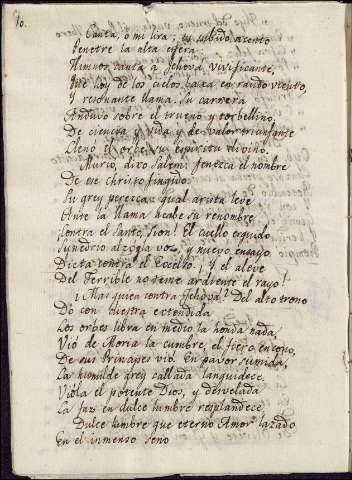 Canta, o mi lira; tu subido acento
Penetre la alta esfera.
Himnos canta à Jehovà vivificante,
Que hoy de los cielos baxa en raudo viento,
Y resonante llama. Su carrera
Anduvo sobre el trueno y torbellino,
De ciencia y vida y de valor triunfante
Llenò el orbe su Espiritu divino.
Muriò, dixo Salem: fenezca el nombre
De ese Christo fingido.
Su grey perezca: qual arista leve
Ante la llama acabe su renombre.
Contra el Santo, Sion! El cuello erguido
Synedrio alzo la voz, y nuevo ensayo
Dicta contra el Excelso. ¡Y el aleve
Del Terrible no teme ardiente el rayo!
¿Mas quien contra Jehovà? Del alto trono
Dò con diestra extendida
Los orbes libra en medio la honda nada,
Viò de Moria la cumbre, el fiero encono,
De sus Principes viò. En pavor sumida,
La humilde grey callada languidece.
Viòla el potente Dios, y desvelada
La faz en dulce lumbre resplandece.
Dulce lumbre que eterno Amor lazado
En el inmenso seno